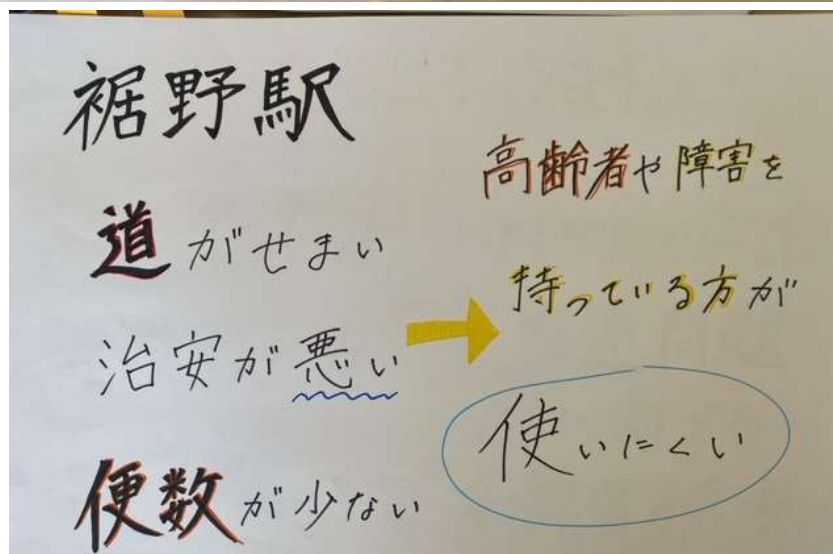 裾野駅
道がせまい
治安が悪い
便数が少ない
高齢者や障害を
持っている方が
使いにくい